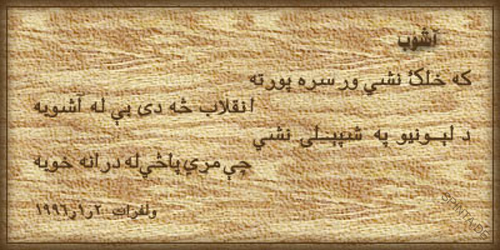 آشوب
که خلکۀ نشي ور سره پورته
انقلاب څه دی بې له آشوبه
د لېونيو په شپېلۍ نشي
چې مړي پاڅي له درانه خوبه
ولفرات ۱۹۹۶ر۱ر۲